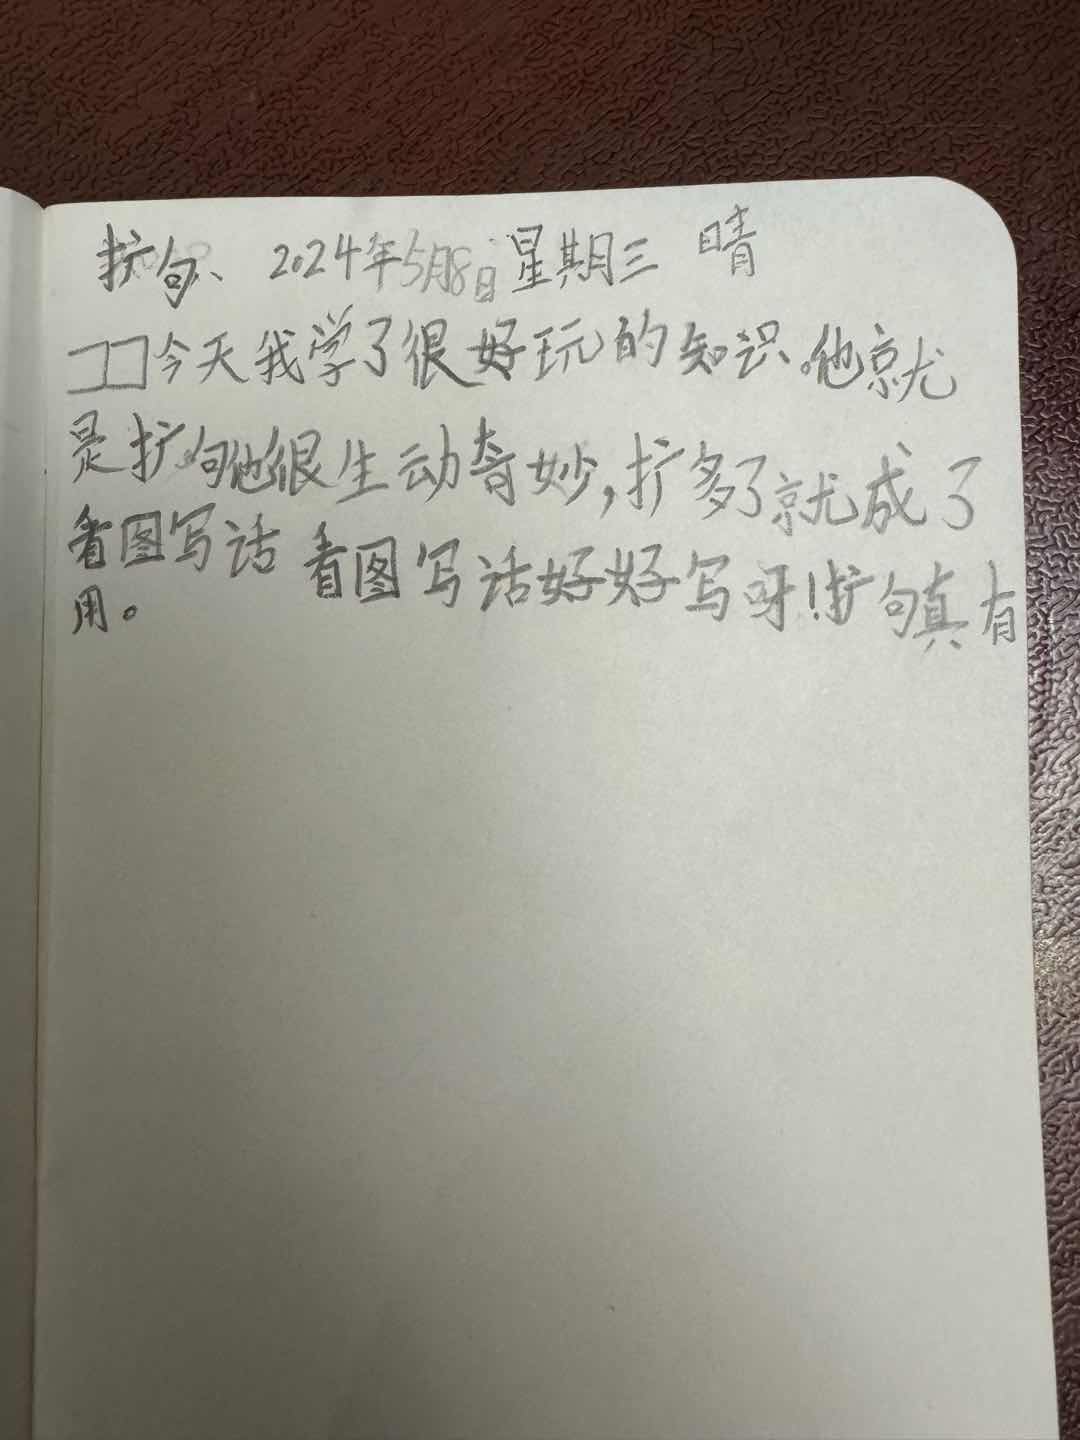 扩句、 2024年5月8日 星期三 晴
口口今天我学了很好玩的知识、他就
是扩句他很生动奇妙,扩多了就成了
看图写话 看图写话好好写呀!扩句真有
用。